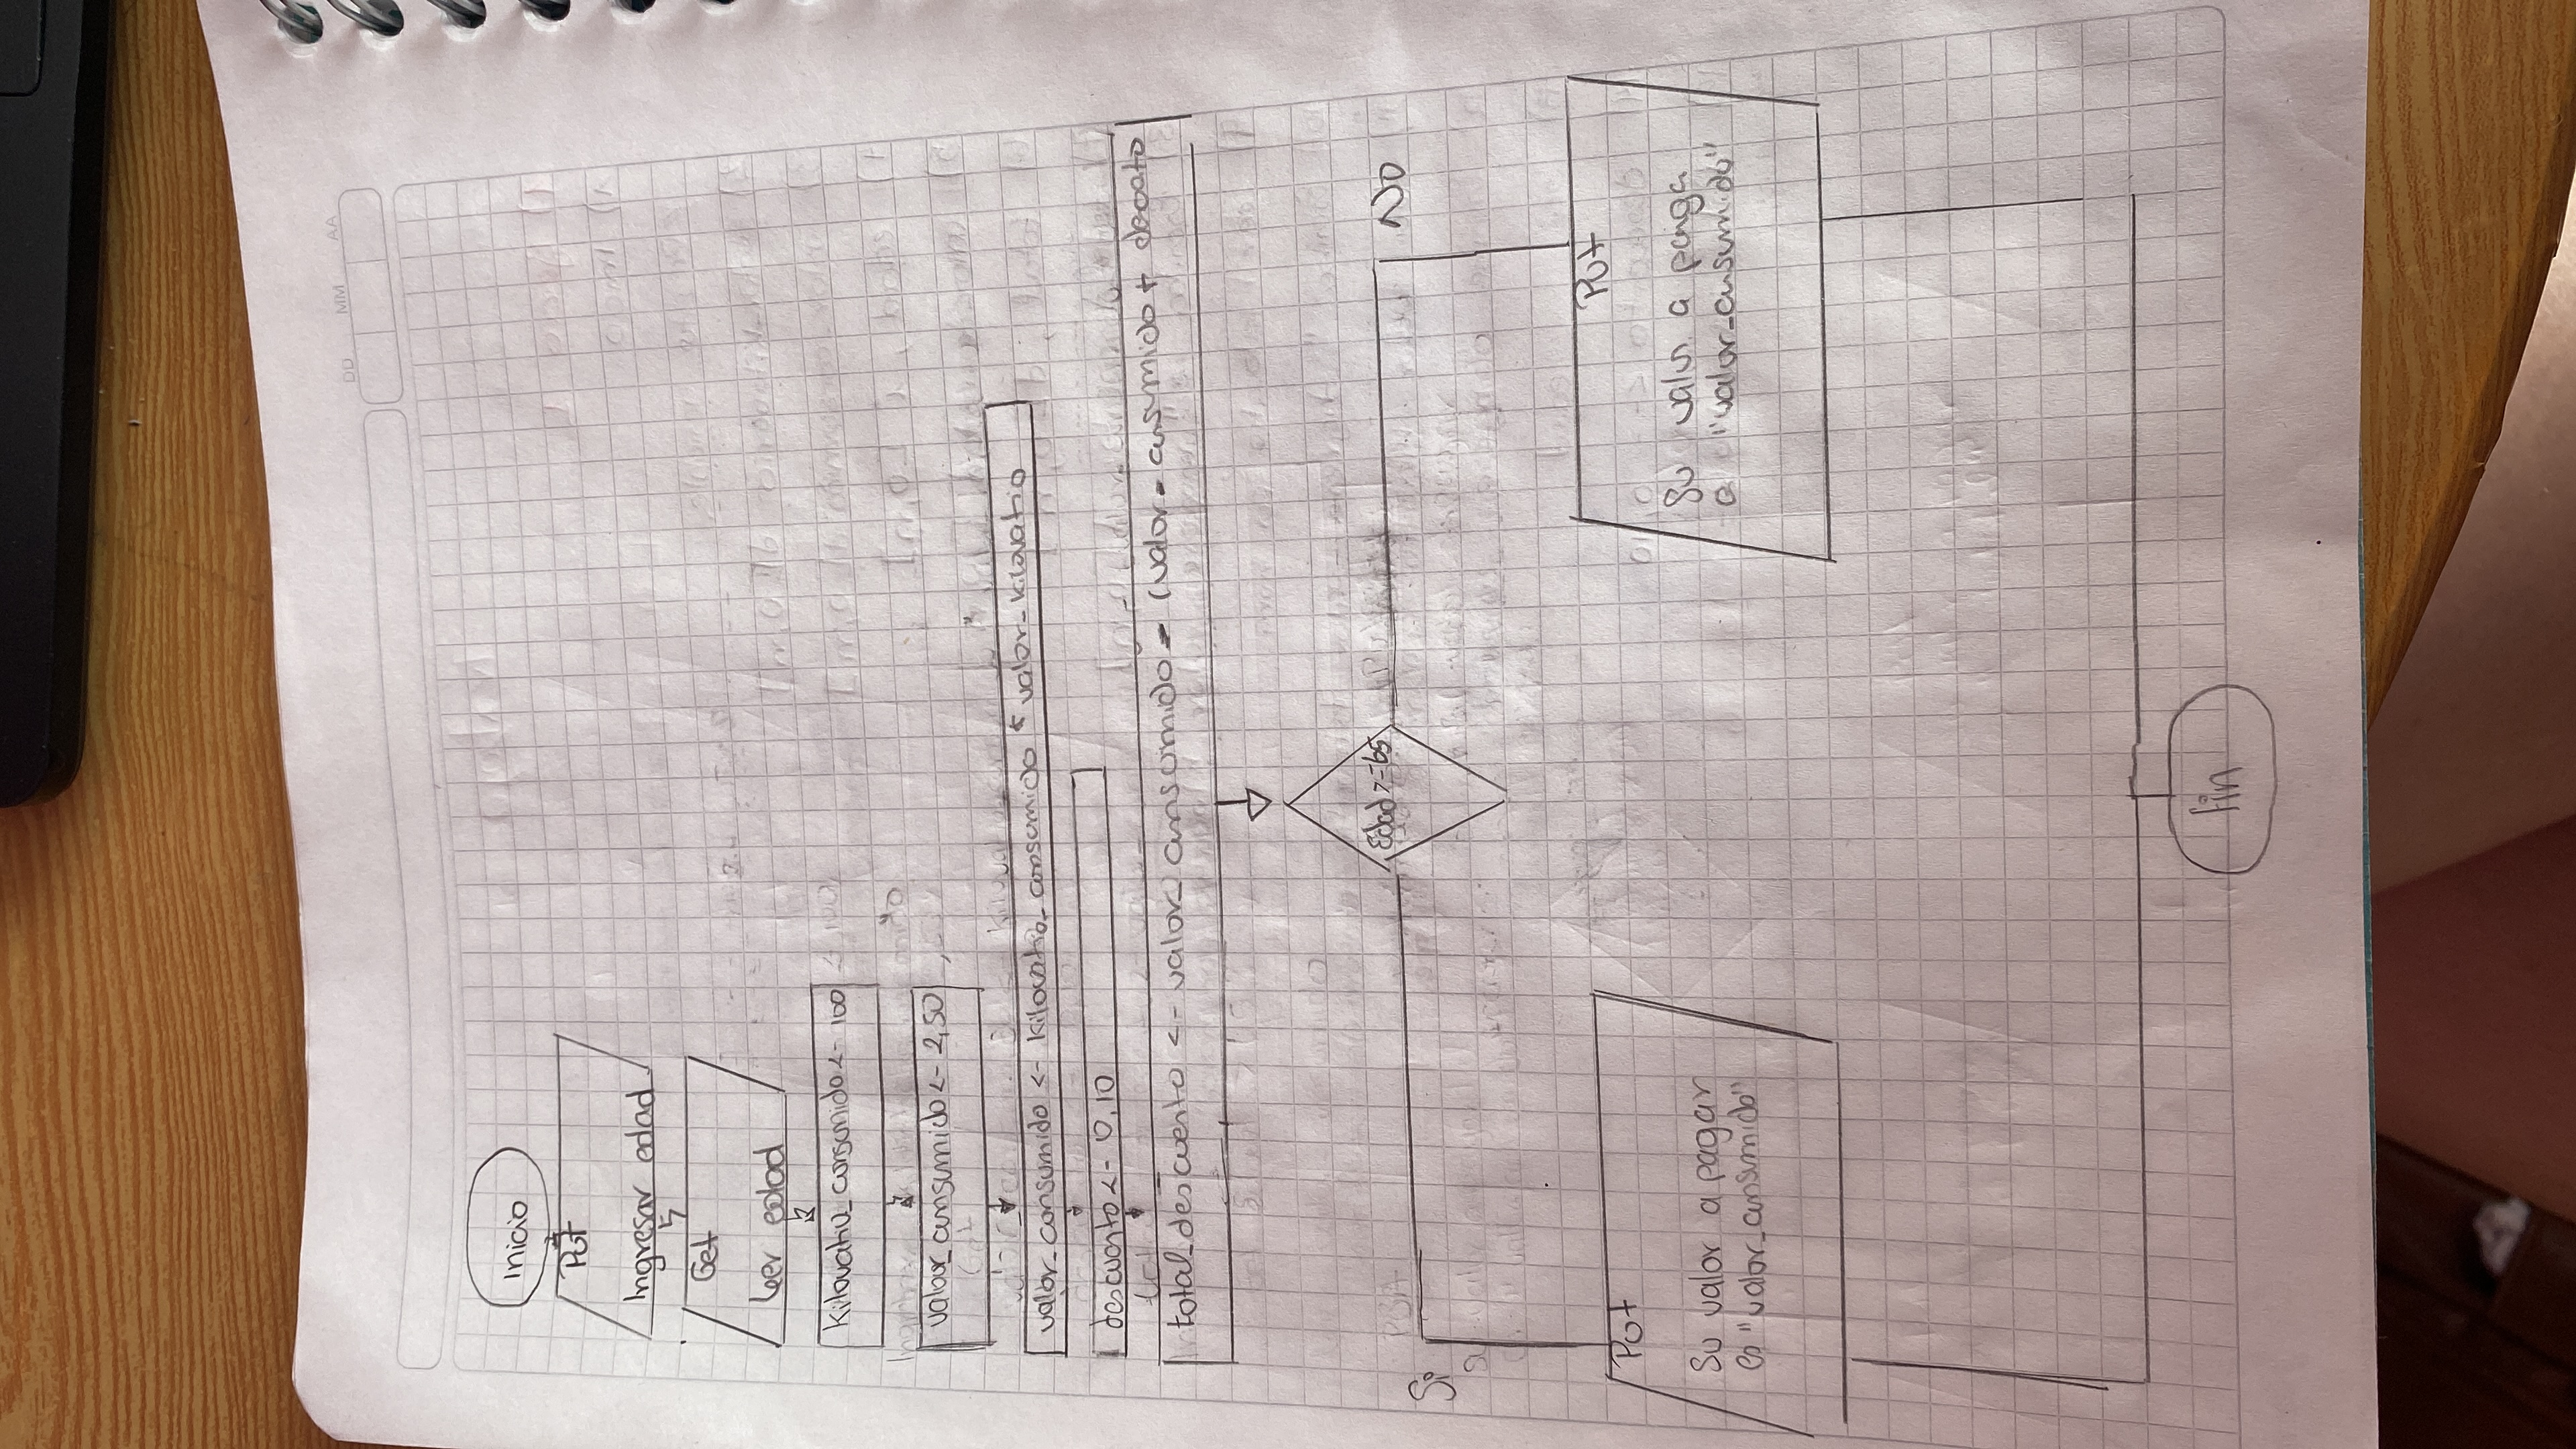 DD MM AA
Inicio
Put
Ingresar edad
Get
leer edad
Kilovatio_consumido <- 100
valor_consumido <- 2,50
valor_consumido <- kilovatio_consumido * valor_kilovatio
descuento <- 0,10
total_descuento <- valor_consumido - (valor_consumido *
Edad >=65
Si
No
Put
Su valor a pagar
es "valor_consumido"
Put
Su valor a paga
"valor_consumido"
Fin